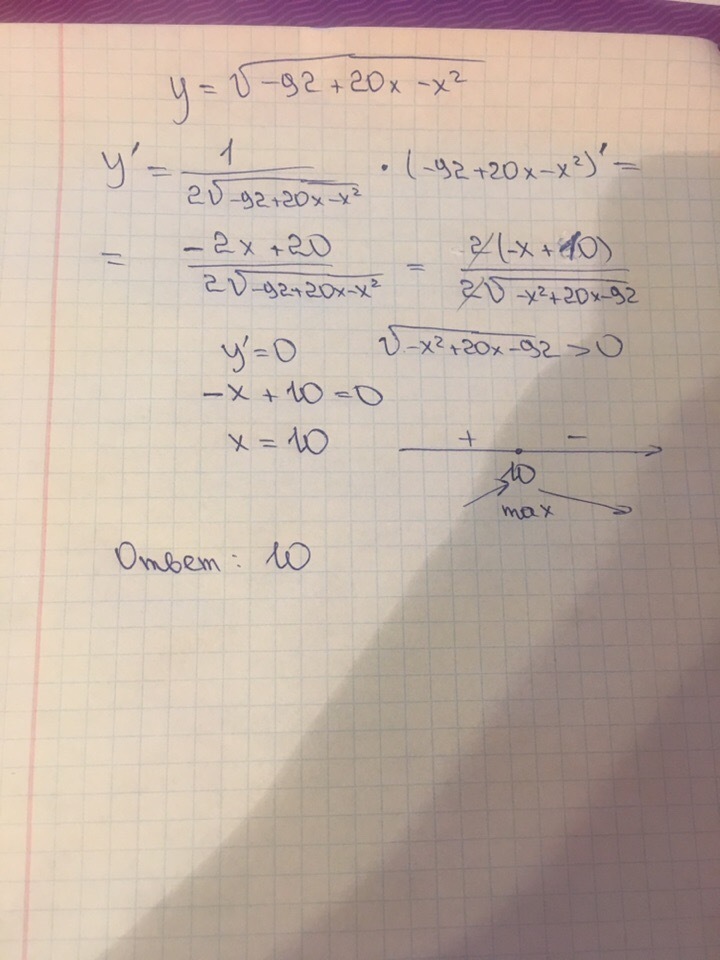 y = √(-92 + 20x - x²)
y' = 1 / (2√(-92+20x-x²)) · (-92+20x-x²)' =
= (-2x + 20) / (2√(-92+20x-x²)) = 2(-x + 10) / (2√(-x²+20x-92))
y' = 0 √(-x²+20x-92) > 0
-x + 10 = 0
x = 10 + -
10
max
Ответ: 10